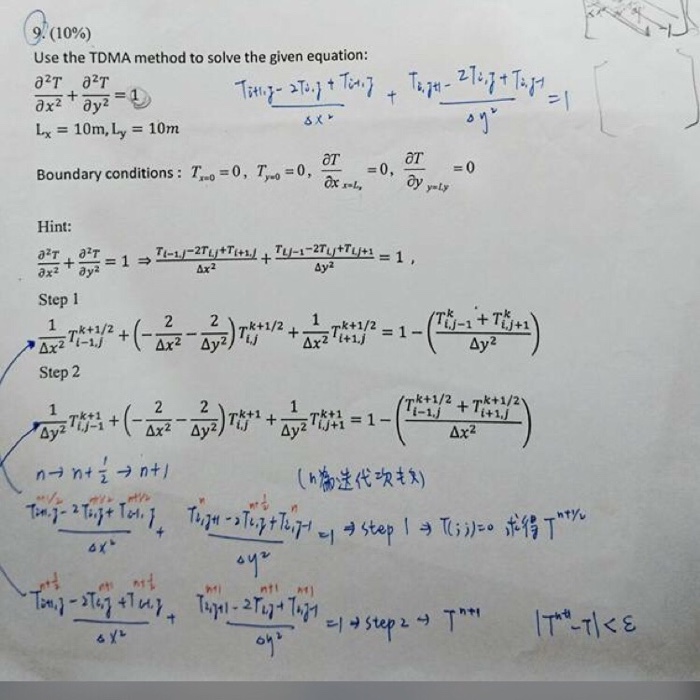 9. (10%)
Use the TDMA method to solve the given equation:
∂²T/∂x² + ∂²T/∂y² = 1
(T_{i+1,j} - 2T_{i,j} + T_{i-1,j})/Δx² + (T_{i,j+1} - 2T_{i,j} + T_{i,j-1})/Δy² = 1
Lₓ = 10m, L_y = 10m
Boundary conditions : T_{x=0} = 0, T_{y=0} = 0, ∂T/∂x_{x=Lₓ} = 0, ∂T/∂y_{y=Ly} = 0
Hint:
∂²T/∂x² + ∂²T/∂y² = 1 ⇒ (T_{i-1,j}-2T_{i,j}+T_{i+1,j})/Δx² + (T_{i,j-1}-2T_{i,j}+T_{i,j+1})/Δy² = 1 ,
Step 1
1/Δx² T_{i-1,j}^{k+1/2} + (-2/Δx² - 2/Δy²) T_{i,j}^{k+1/2} + 1/Δx² T_{i+1,j}^{k+1/2} = 1 - ((T_{i,j-1}^k + T_{i,j+1}^k)/Δy²)
Step 2
1/Δy² T_{i,j-1}^{k+1} + (-2/Δx² - 2/Δy²) T_{i,j}^{k+1} + 1/Δy² T_{i,j+1}^{k+1} = 1 - ((T_{i-1,j}^{k+1/2} + T_{i+1,j}^{k+1/2})/Δx²)
n → n+½ → n+1 (n為迭代次數)
(T_{i+1,j}^{n+1/2} - 2T_{i,j}^{n+1/2} + T_{i-1,j}^{n+1/2})/Δx² + (T_{i,j+1}^n - 2T_{i,j}^{n+½} + T_{i,j-1}^n)/Δy² = 1 ⇒ step 1 → T(i,j)=0 求得 T^{n+1/2}
(T_{i+1,j}^{n+½} - 2T_{i,j} + T_{i-1,j}^{n+½})/Δx² + (T_{i,j+1}^{n+1} - 2T_{i,j}^{n+1} + T_{i,j-1}^{n+1})/Δy² = 1 → step 2 → T^{n+1} |T^{n+1} - T| < ε